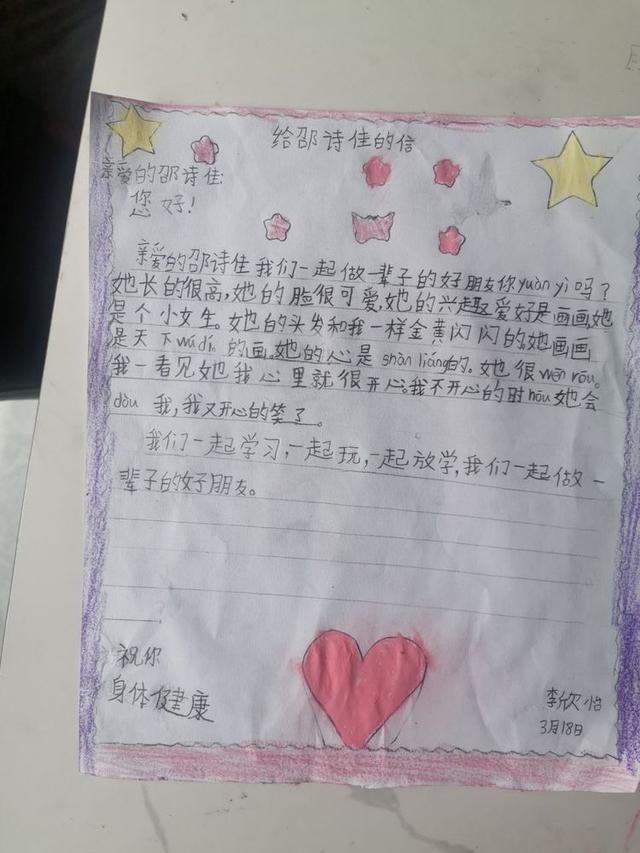 给邵诗佳的信
亲爱的邵诗佳:
您好!
亲爱的邵诗佳我们一起做一辈子的好朋友你yuàn yì吗?
她长的很高,她的脸很可爱,她的兴趣爱好是画画,她
是个小女生。她的头发和我一样金黄闪闪的,她画画
是天下wú dí的画,她的心是shàn liáng的。她很wēn róu。
我一看见她我心里就很开心。我不开心的时hòu她会
dòu我,我又开心的笑了。
我们一起学习,一起玩,一起放学,我们一起做一
辈子的好朋友。
祝你
身体健康
李欣怡
3月18日